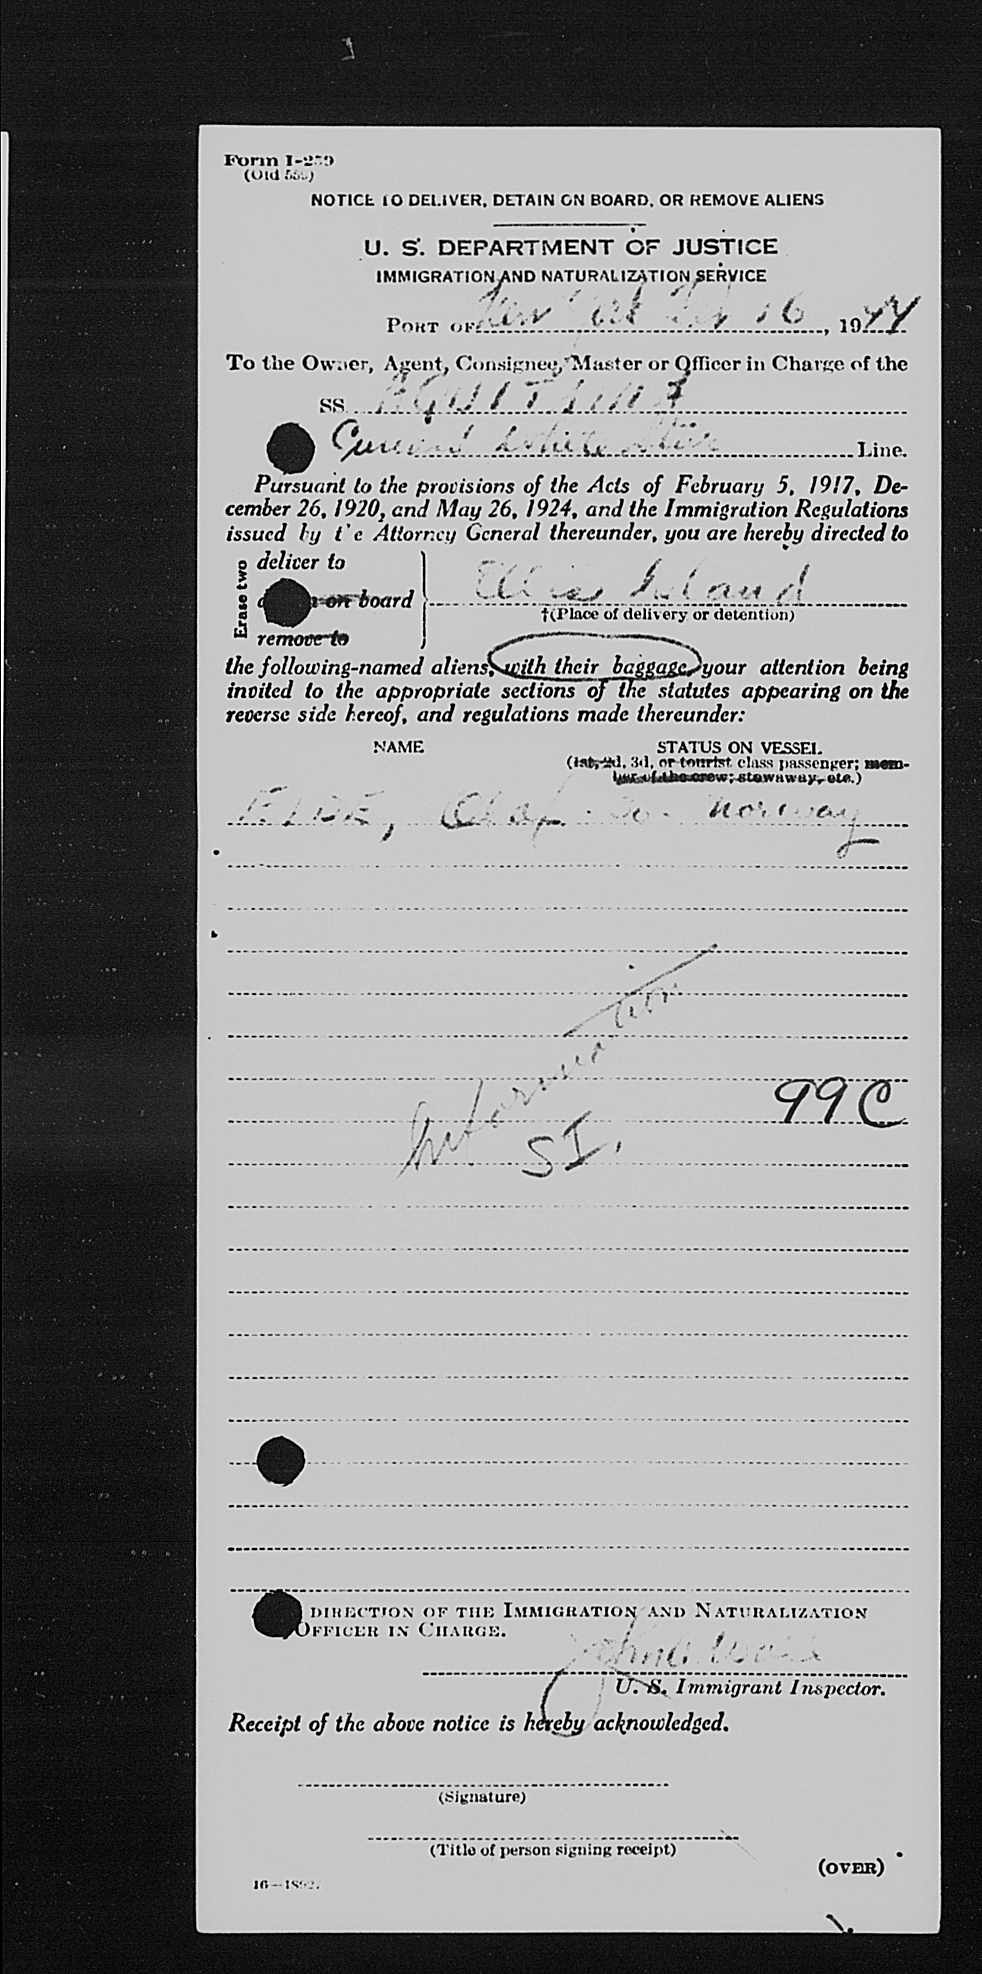 Form I-259
(Old 555)
NOTICE TO DELIVER, DETAIN ON BOARD, OR REMOVE ALIENS
U. S. DEPARTMENT OF JUSTICE
IMMIGRATION AND NATURALIZATION SERVICE
PORT OF New York Feb 16, 1944
To the Owner, Agent, Consignee, Master or Officer in Charge of the
SS. AQUITANIA
Cunard White Star Line.
Pursuant to the provisions of the Acts of February 5, 1917, De-
cember 26, 1920, and May 26, 1924, and the Immigration Regulations
issued by the Attorney General thereunder, you are hereby directed to
Erase two
deliver to
on board
remove to
Ellis Island
†(Place of delivery or detention)
the following-named aliens, with their baggage, your attention being
invited to the appropriate sections of the statutes appearing on the
reverse side hereof, and regulations made thereunder:
NAME STATUS ON VESSEL
(1st, 2d, 3d, or tourist class passenger; mem-
ber of the crew; stowaway, etc.)
EIDE, Olaf Norway
Information
99C
SI.
DIRECTION OF THE IMMIGRATION AND NATURALIZATION
OFFICER IN CHARGE.
John
U. S. Immigrant Inspector.
Receipt of the above notice is hereby acknowledged.
(Signature)
(Title of person signing receipt)
(OVER)